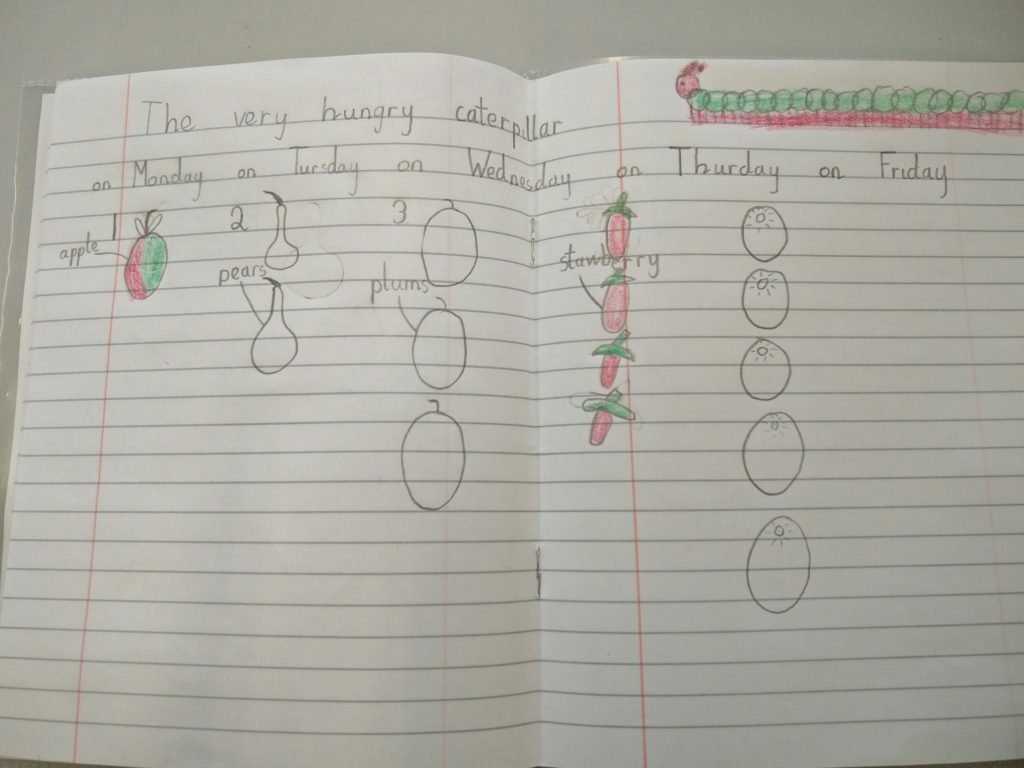 The very hungry caterpillar
on Monday on Tursday on Wednesday on Thurday on Friday
1 2 3
apple
pears plums stawberry